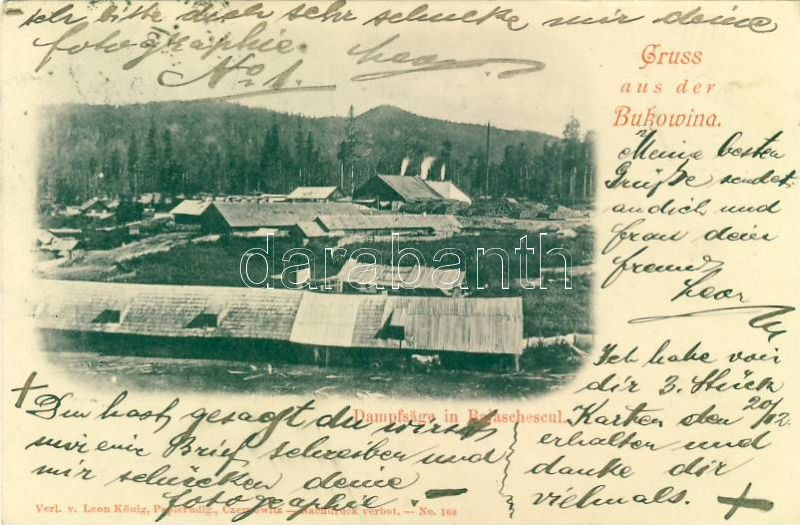 ich bitte dich sehr schücke mir deine
fotographie.
No. 1. Leor
Gruss
aus der
Bukowina.
Meine besten
Grüße sendet
an dich und
frau deier
freund
Leor
darabanth
Ich habe voir
dir 3. Stück
Karten den 20/12
erhalten und
danke dir
vielmals. +
Dampfsäge in Rajaschescul.
+ Du hast gesagt du wirst
mir einr Brief schreiben und
mir schücken deine
fotographie. —
Verl. v. Leon König, Papierhdlg., Czernowitz — Nachdruck verbot. — No. 168